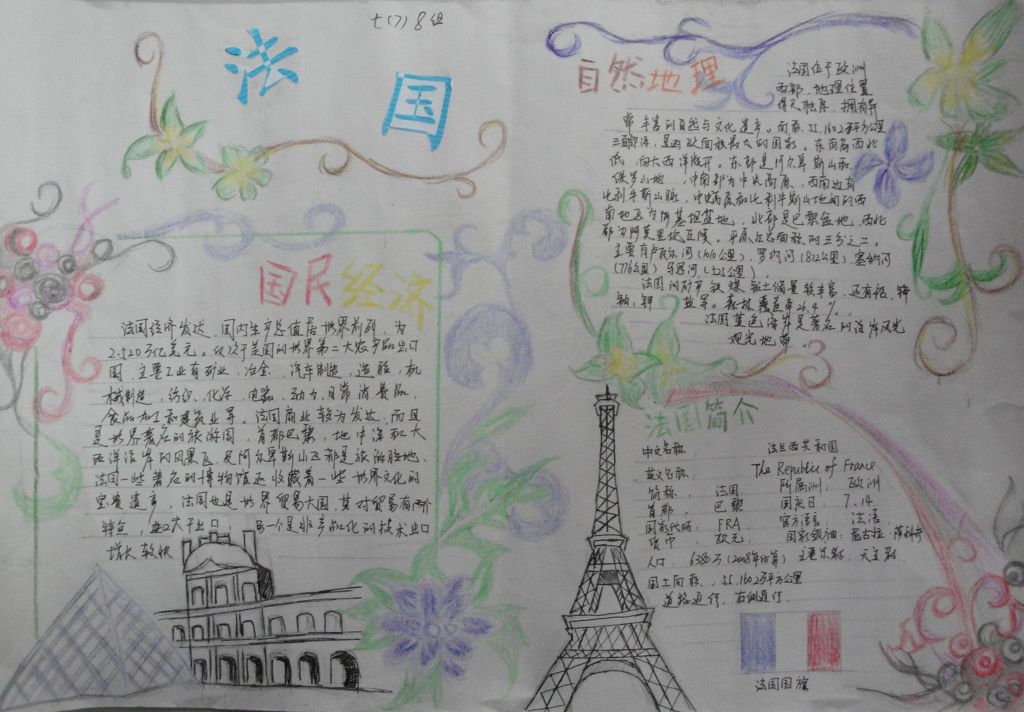 七(7) 8组
法国
国民经济
法国经济发达，国内生产总值居世界前列，为
2.520万亿美元。仅次于美国的世界第二大农产品出口
国，主要工业有矿业，冶金，汽车制造，造船，机
械制造，纺织、化学、电器、动力、日常消费品、
食品加工和建筑业等。法国商业较为发达，而且
是世界著名的旅游国，首都巴黎、地中海和大
西洋沿岸的风景区及阿尔卑斯山区都是旅游胜地。
法国一些著名的博物馆还收藏着一些世界文化的
宝贵遗产，法国也是世界贸易大国，其对贸易有两个
特点，进口大于出口，另一个是非产品化的技术出口
增长较快
自然地理
法国位于欧洲
西部，地理位置
得天独厚，拥有异
常丰富的自然与文化遗产。面积55.1602万平方公里
三面临海，是西欧面积最大的国家。东南高西北
低，向大西洋敞开。东部是阿尔卑斯山脉
侏罗山地，中南部为中央高原、西南边有
比利牛斯山脉，中央高原和比利牛斯山地间的西
南地区为阿基坦盆地，北部是巴黎盆地，西北
部为阿莫里坎丘陵。平原占总面积的三分之二。
主要有卢瓦尔河(1010公里)，罗纳河(812公里)、塞纳河
(776公里)
法国的矿产铁、煤、铝土储量较丰富，还有铀、锌
盐等。森林覆盖率26.4%。
法国蓝色海岸是著名的沿岸风光
观光地带。
法国简介
中文名称： 法兰西共和国
英文名称： The Republic of France
简称： 法国 所属洲： 欧洲
首都： 巴黎 国庆日： 7.14
国家代码： FRA 官方语言： 法语
货币： 欧元， 国家领袖：尼古拉·萨科齐
人口： 6380万(2008年估算) 主要宗教：天主教
国土面积：55.1602万平方公里
道路通行，右侧通行.
法国国旗